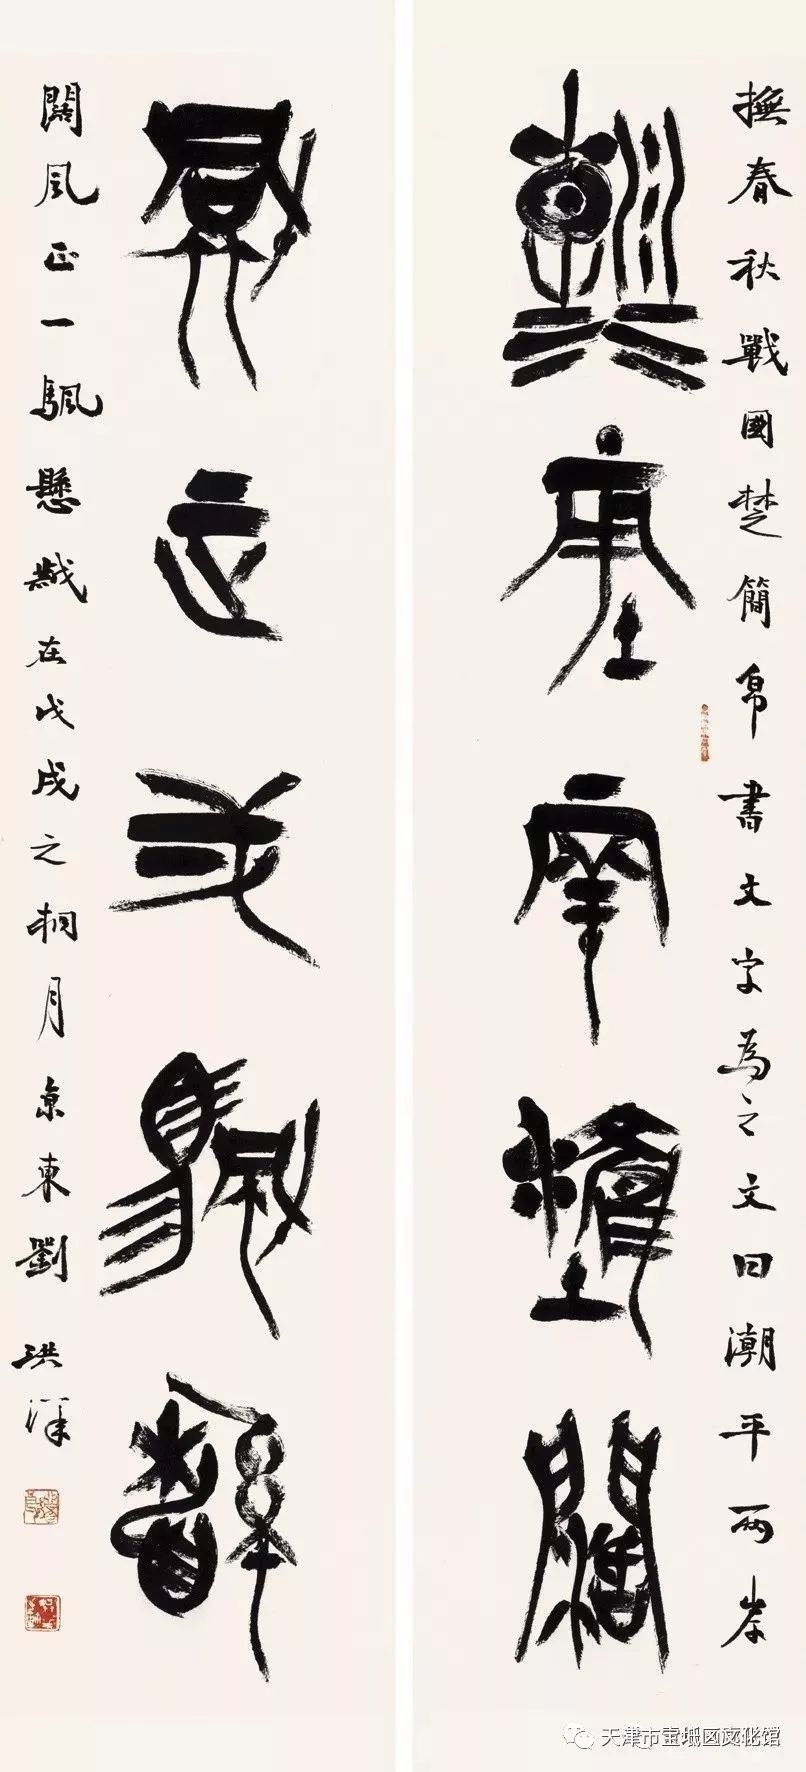 撫春秋戰國楚簡帛書文字為之文曰潮平兩岸
潮平兩岸闊
風正一颿懸
闊風正一颿懸在戊戌之桐月京東劉洪洋
天津市宝坻区文化馆